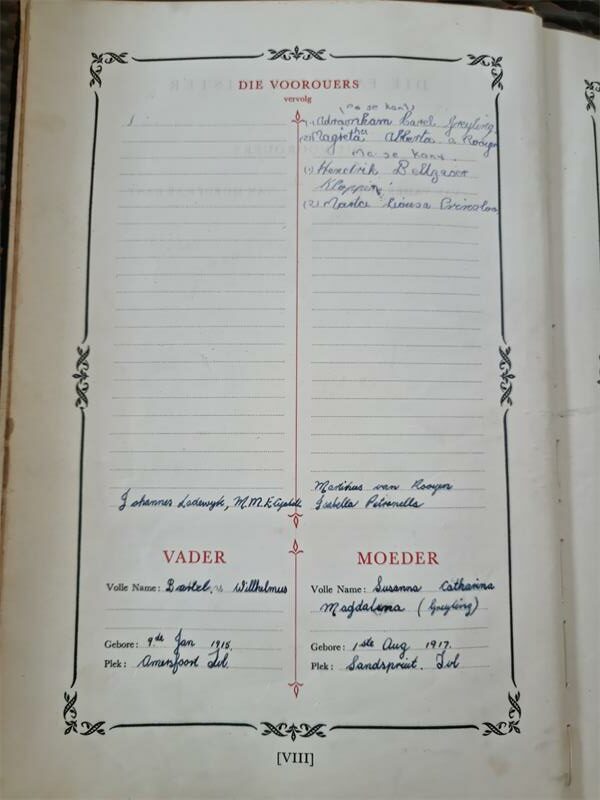 DIE VOOROUERS
vervolg
(ma se kant)
(1) Adramham Carel Greyling
(2) Magrieta Alberta v Rooyn
Ma se kant.
(1) Hendrik Beltzaser
Kloppen
(2) Prinsloo
Marthus van Rooyen
Johannes Lodewyk, M.M.E.
Isabella Petronella
VADER
Volle Name: Bartel, Willhelmus
Gebore: 9de Jan 1915.
Plek: Amersfoort Tvl.
MOEDER
Volle Name: Susanna Catharina
Magdalena (Greyling)
Gebore: 1ste Aug 1917.
Plek: Sandspruit. Tvl
[VIII]